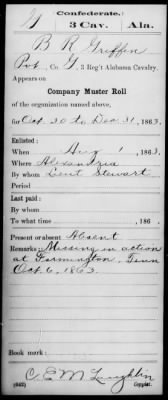 Confederate.
G 3 Cav. Ala.
B R Griffin
Pvt, Co. G, 3 Reg't Alabama Cavalry.
Appears on
Company Muster Roll
of the organization named above,
for Oct. 30 to Dec 31, 1863.
Enlisted:
When Aug 1, 1863.
Where Alexandria
By whom Lieut Stewart
Period
Last paid:
By whom
To what time , 186 .
Present or absent Absent
Remarks: Missing in action
at Farmington, Tenn
Oct. 6, 1863.
Book mark:
C. E. McLaughlin
(642) Copyist.